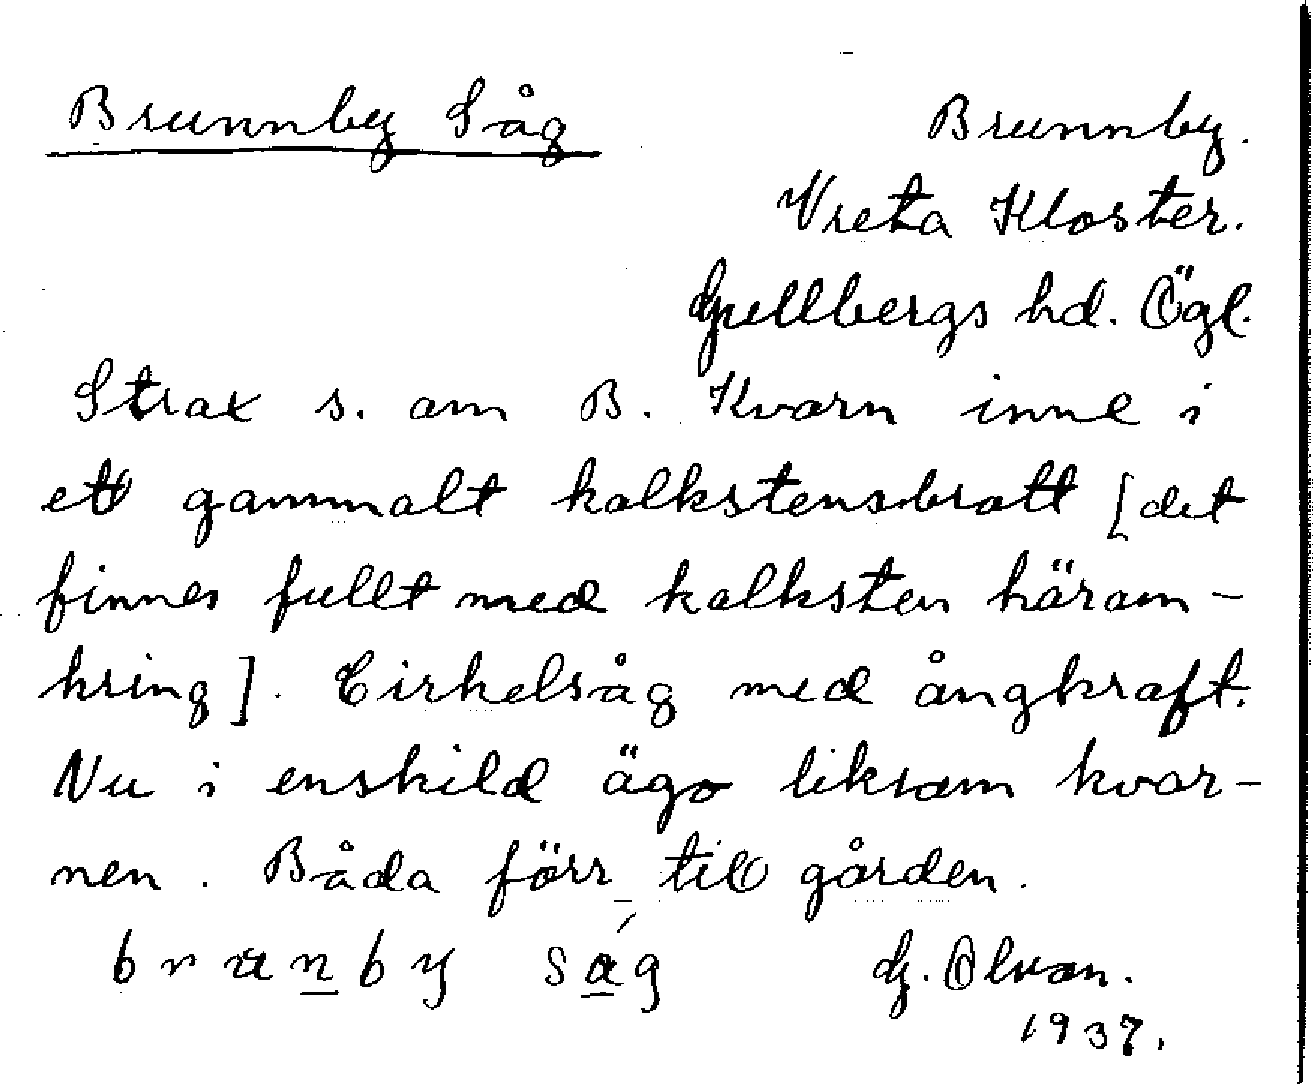 Brunnby Såg
Brunnby.
Vreta Kloster.
Gullbergs hd. Ögl.
Strax s. om B. Kvarn inne i
ett gammalt kalkstensbrott [det
finnes fullt med kalksten härom-
kring]. Cirkelsåg med ångkraft.
Nu i enskild ägo liksom kvar-
nen. Båda förr till gården.
G.
1937.